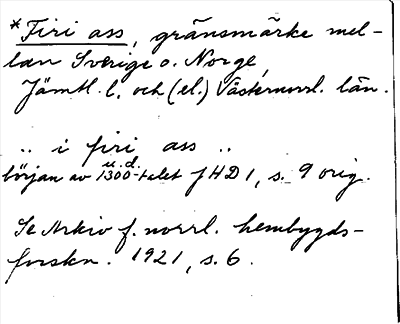 *Firi ass, gränsmärke mel-
lan Sverige o. Norge,
Jämtl. l. och (el.) Västernorrl. län.
.. i firi ass ..
u.d.
början av 1300-talet JHD 1, s. 9 orig.
Se Arkiv f. norrl. hembygds-
forskn. 1921, s. 6.